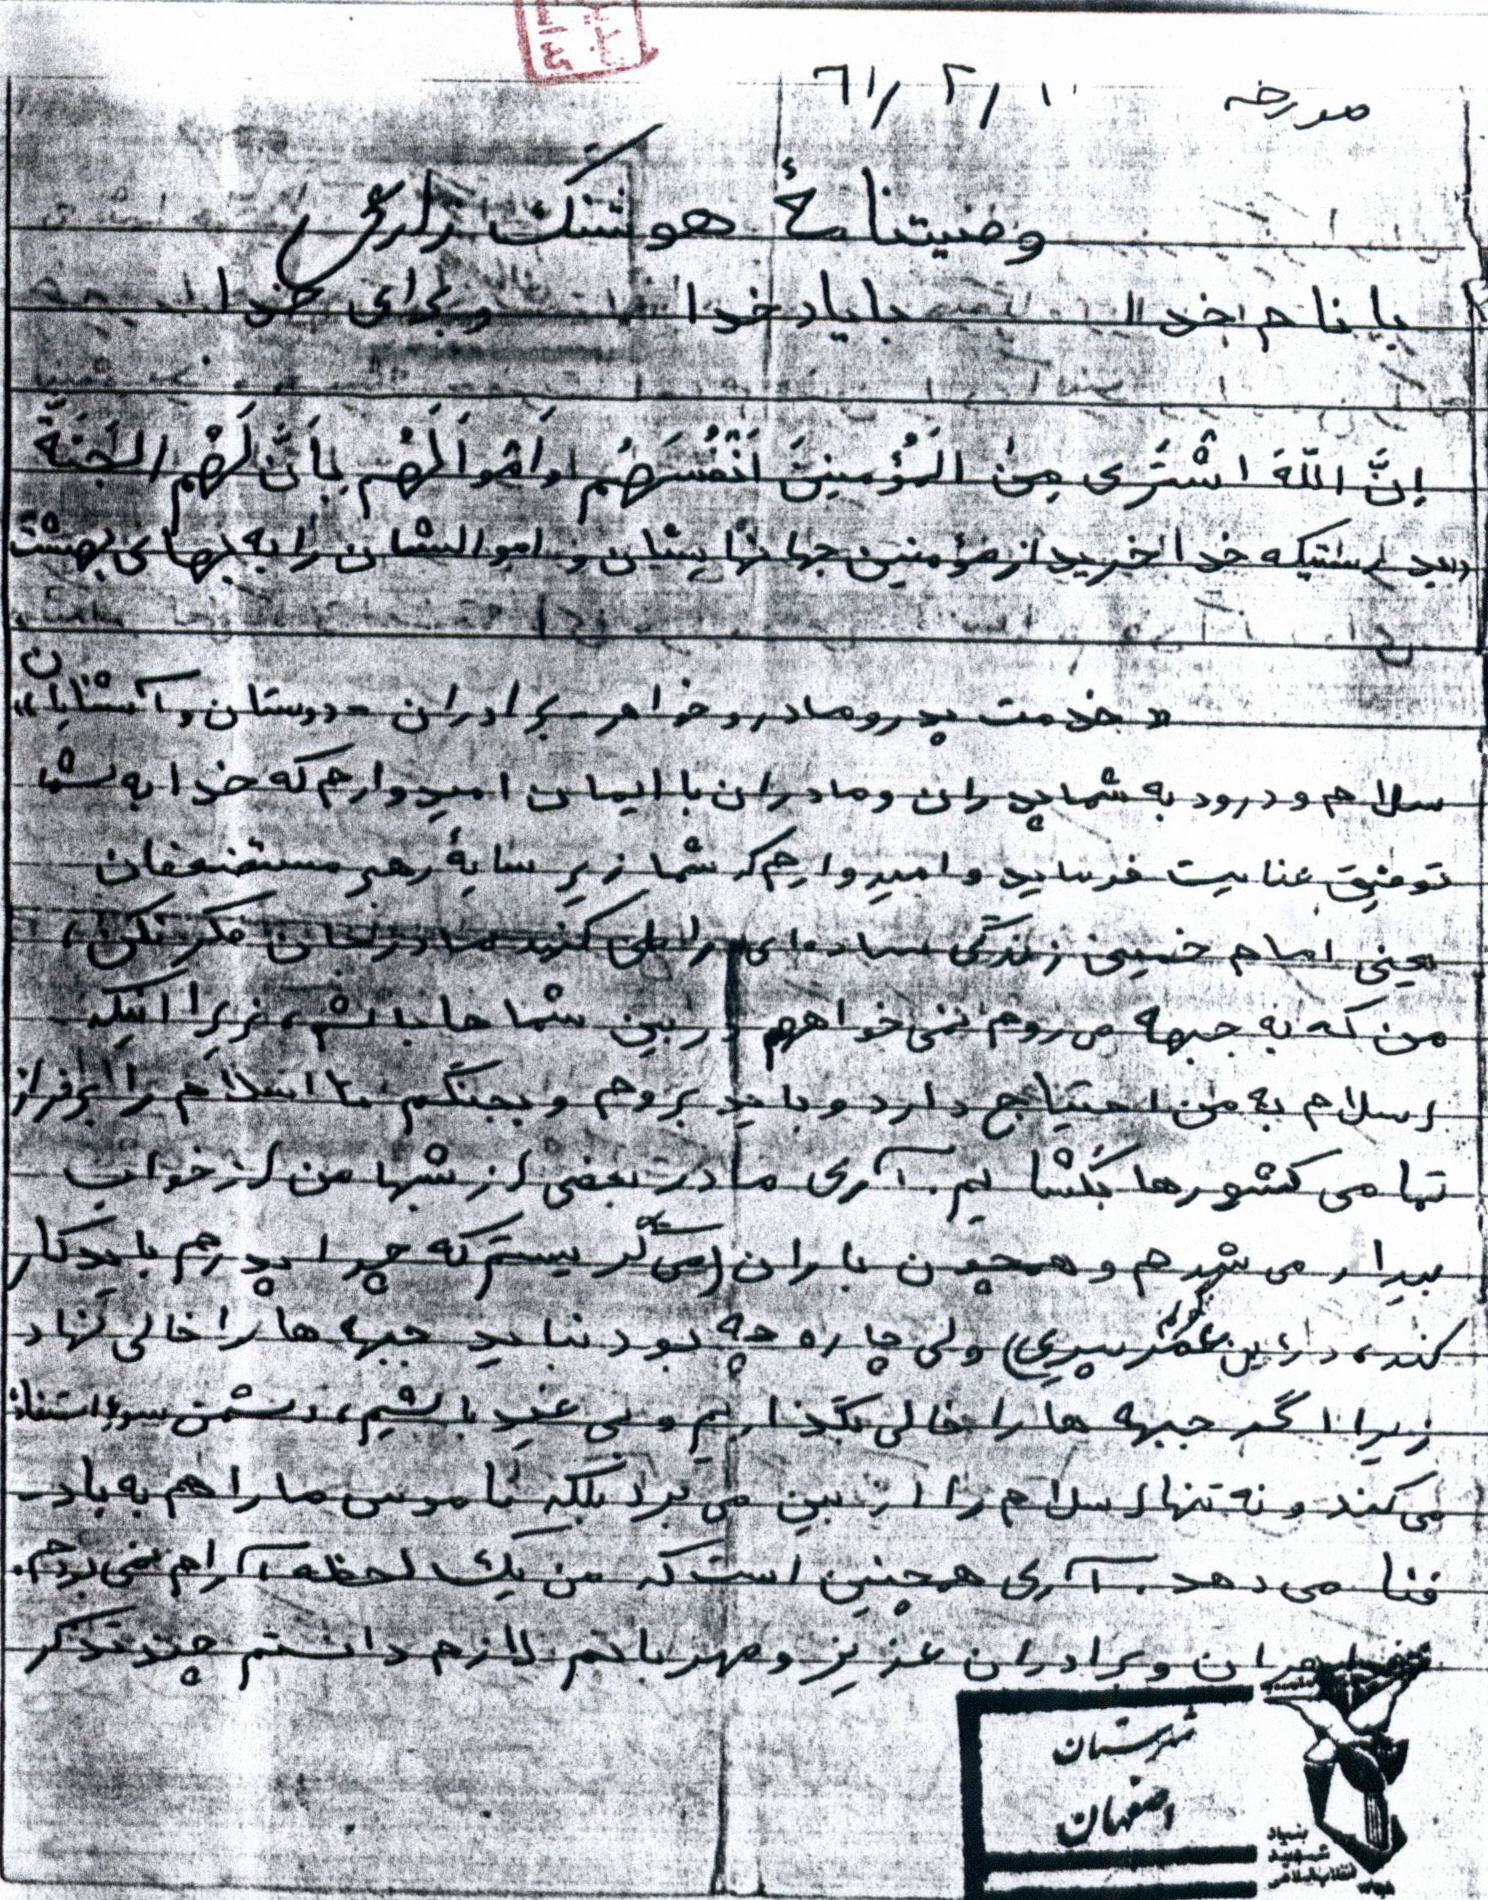 مورخه ۶۱/۲/۱۰
وصیتنامهٔ هوشنگ زارعی
با نام خدا با یاد خدا و برای خدا
اِنَّ اللّهَ اشْتَری مِنَ الْمُؤْمِنینَ اَنْفُسَهُم وَاَمْوالَهُم بِاَنَّ لَهُم الْجَنَّةَ
«بدرستیکه خدا خرید از مؤمنین جانهایشان و اموالشان را به بهای بهشت
« خدمت پدر و مادر و خواهر - برادران - دوستان و آشنایان»
سلام و درود به شما پدران و مادران با ایمان امیدوارم که خدا به شما
توفیق عنایت فرماید و امیدوارم که شما زیر سایهٔ رهبر مستضعفان
یعنی امام خمینی زندگی ساده‌ای را طی کنید مادرجان فکر نکن،
من که به جبهه می‌روم نمی‌خواهم در بین شماها باشم، زیرا اینکه
اسلام به من احتیاج دارد و باید بروم و بجنگم تا اسلام را برفراز
تمامی کشورها بگشایم. آری مادر بعضی از شبها من از خواب
بیدار می‌شدم و همچون باران (می‌گریستم که چرا پدرم باید کار
کند، در این عمر پیری) ولی چاره چه بود نباید جبهه ها را خالی نهاد
زیرا اگر جبهه ها را خالی بگذاریم و بی غیر باشیم، دشمن سوء استفاده
می‌کند و نه تنها اسلام را از بین می‌برد بلکه ناموس ما را هم به باد
فنا می‌دهد. آری همچنین است که من یک لحظه آرام نمی‌بودم.
خواهران و برادران عزیز و مهربانم لازم دانستم چند تذکر
شهرستان
اصفهان
بنیاد
شهید
انقلاب اسلامی